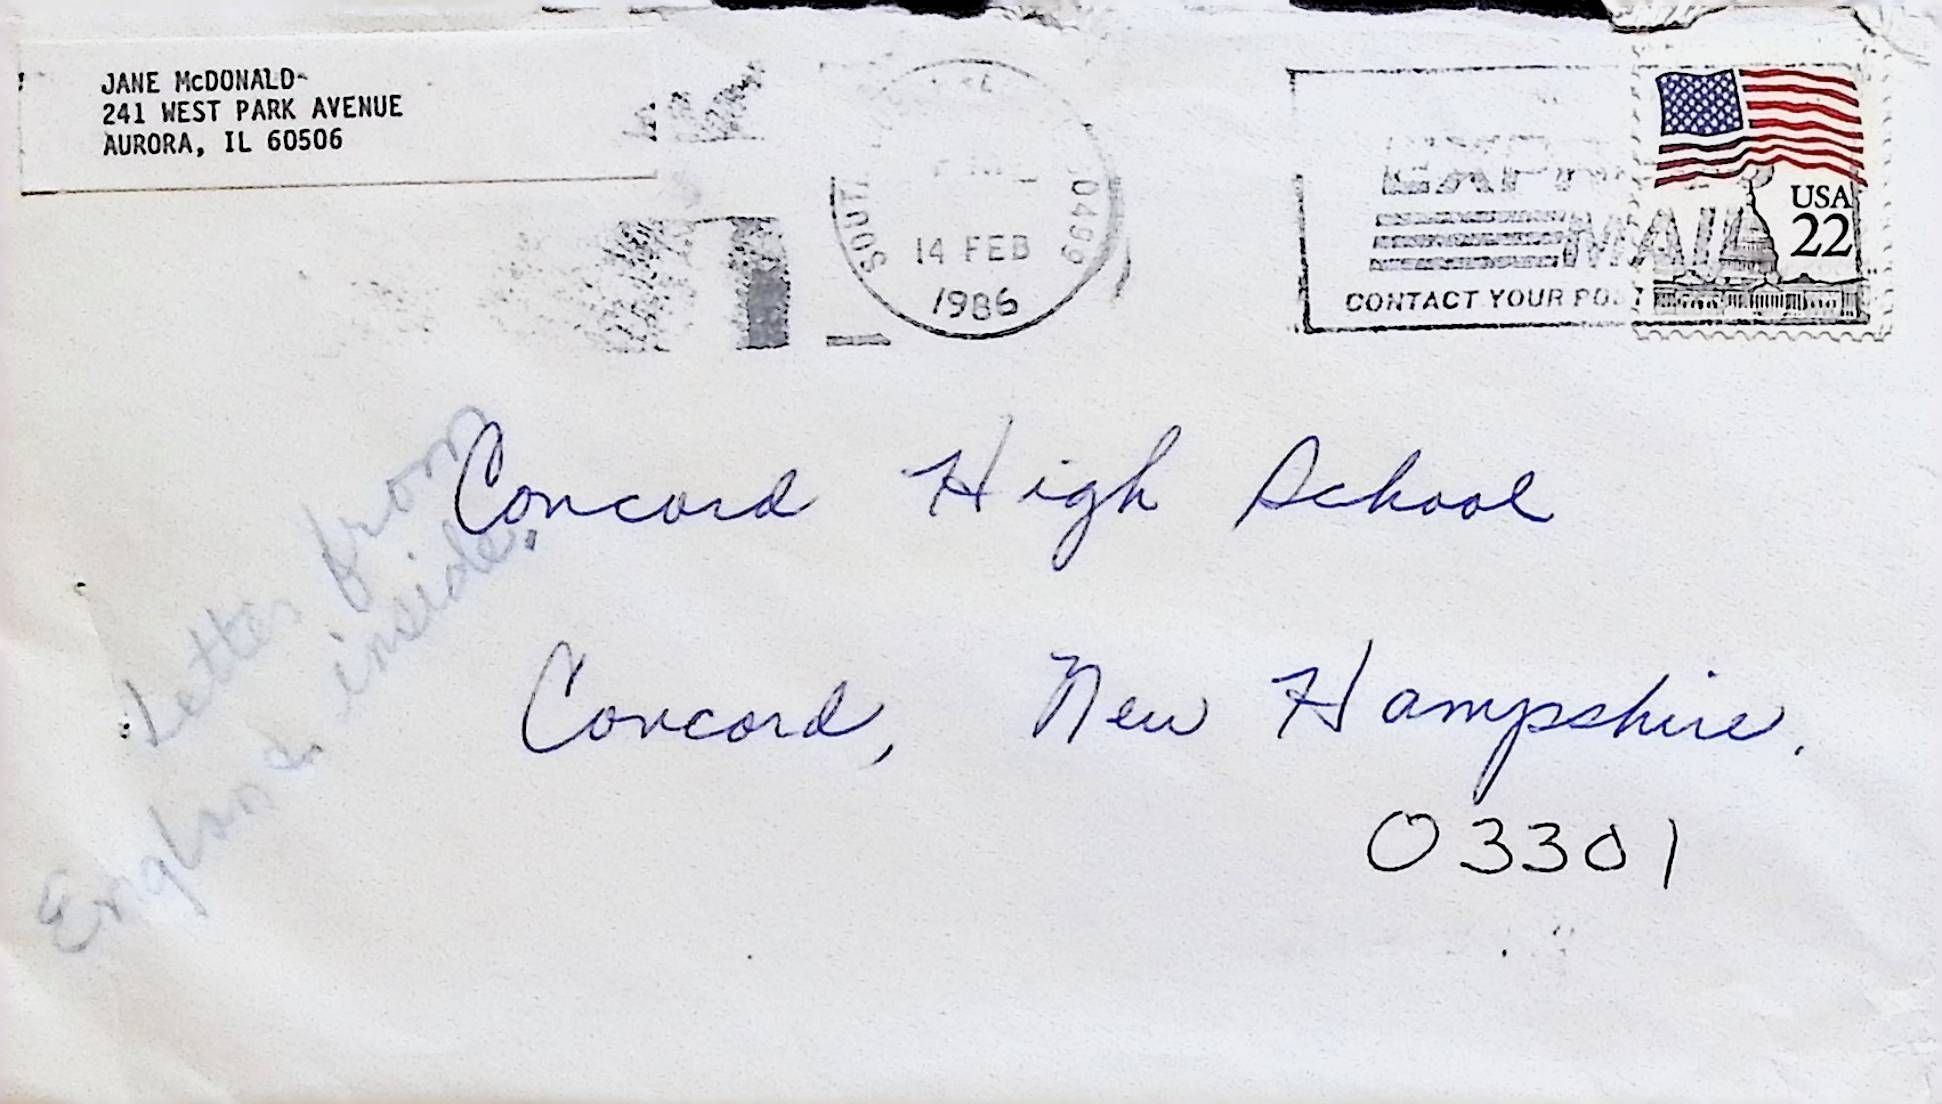 JANE McDONALD
241 WEST PARK AVENUE
AURORA, IL 60506
14 FEB
1986
MAIL
CONTACT YOUR
USA
22
Letter from
England inside.
Concord High School
Concord, New Hampshire.
03301